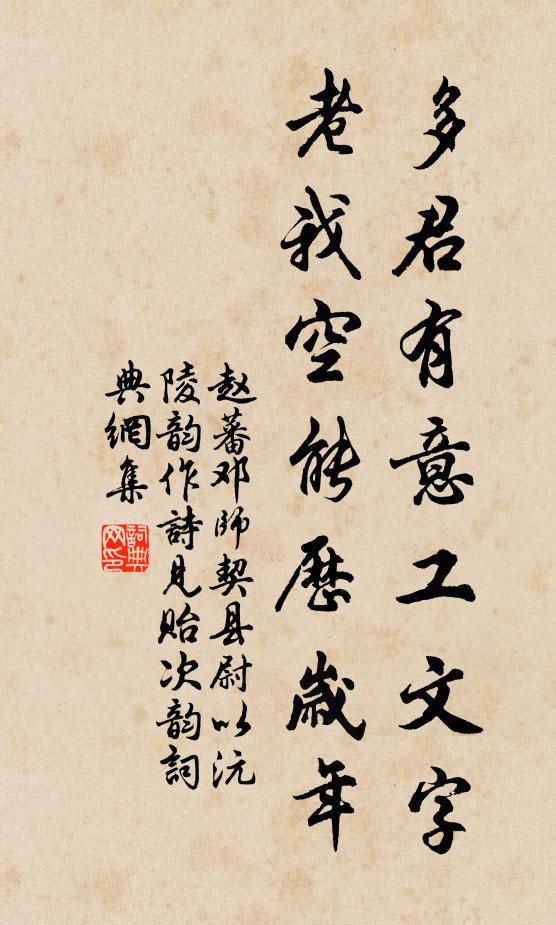 多君有意工文字
老我空能歷歲年
赵蕃邓師契县尉以沅
陵韵作詩見貽次韵詞
典網集
詞典
网印